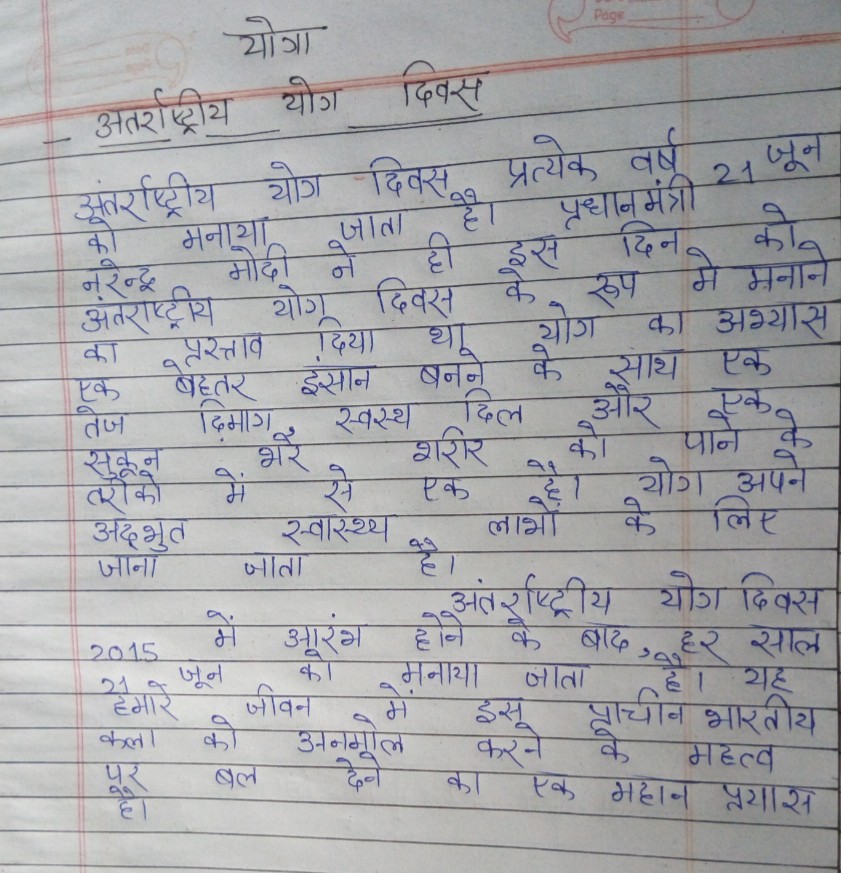 Page
योगा
अतर्राष्ट्रीय योग दिवस
अंतर्राष्ट्रीय योग दिवस प्रत्येक वर्ष 21 जून
को मनाया जाता है। प्रधानमंत्री
नरेन्द्र मोदी ने ही इस दिन को
अंतराष्ट्रीय योग दिवस के रूप मे मनाने
का प्रस्ताव दिया था योग का अभ्यास
एक बेहतर इंसान बनने के साथ एक
तेज दिमाग स्वस्थ दिल और एक
सुकून भरे शरीर को पाने के
तरीको में से एक है। योग अपने
अद्भुत स्वास्थ्य लाभों के लिए
जाना जाता है।
अंतर्राष्ट्रीय योग दिवस
2015 में आरंभ होने के बाद, हर साल
21 जून का मनाया जाता है। यह
हमारे जीवन में इस प्राचीन भारतीय
कला को अनमोल करने के महत्व
पर बल देने का एक महान प्रयास
है।